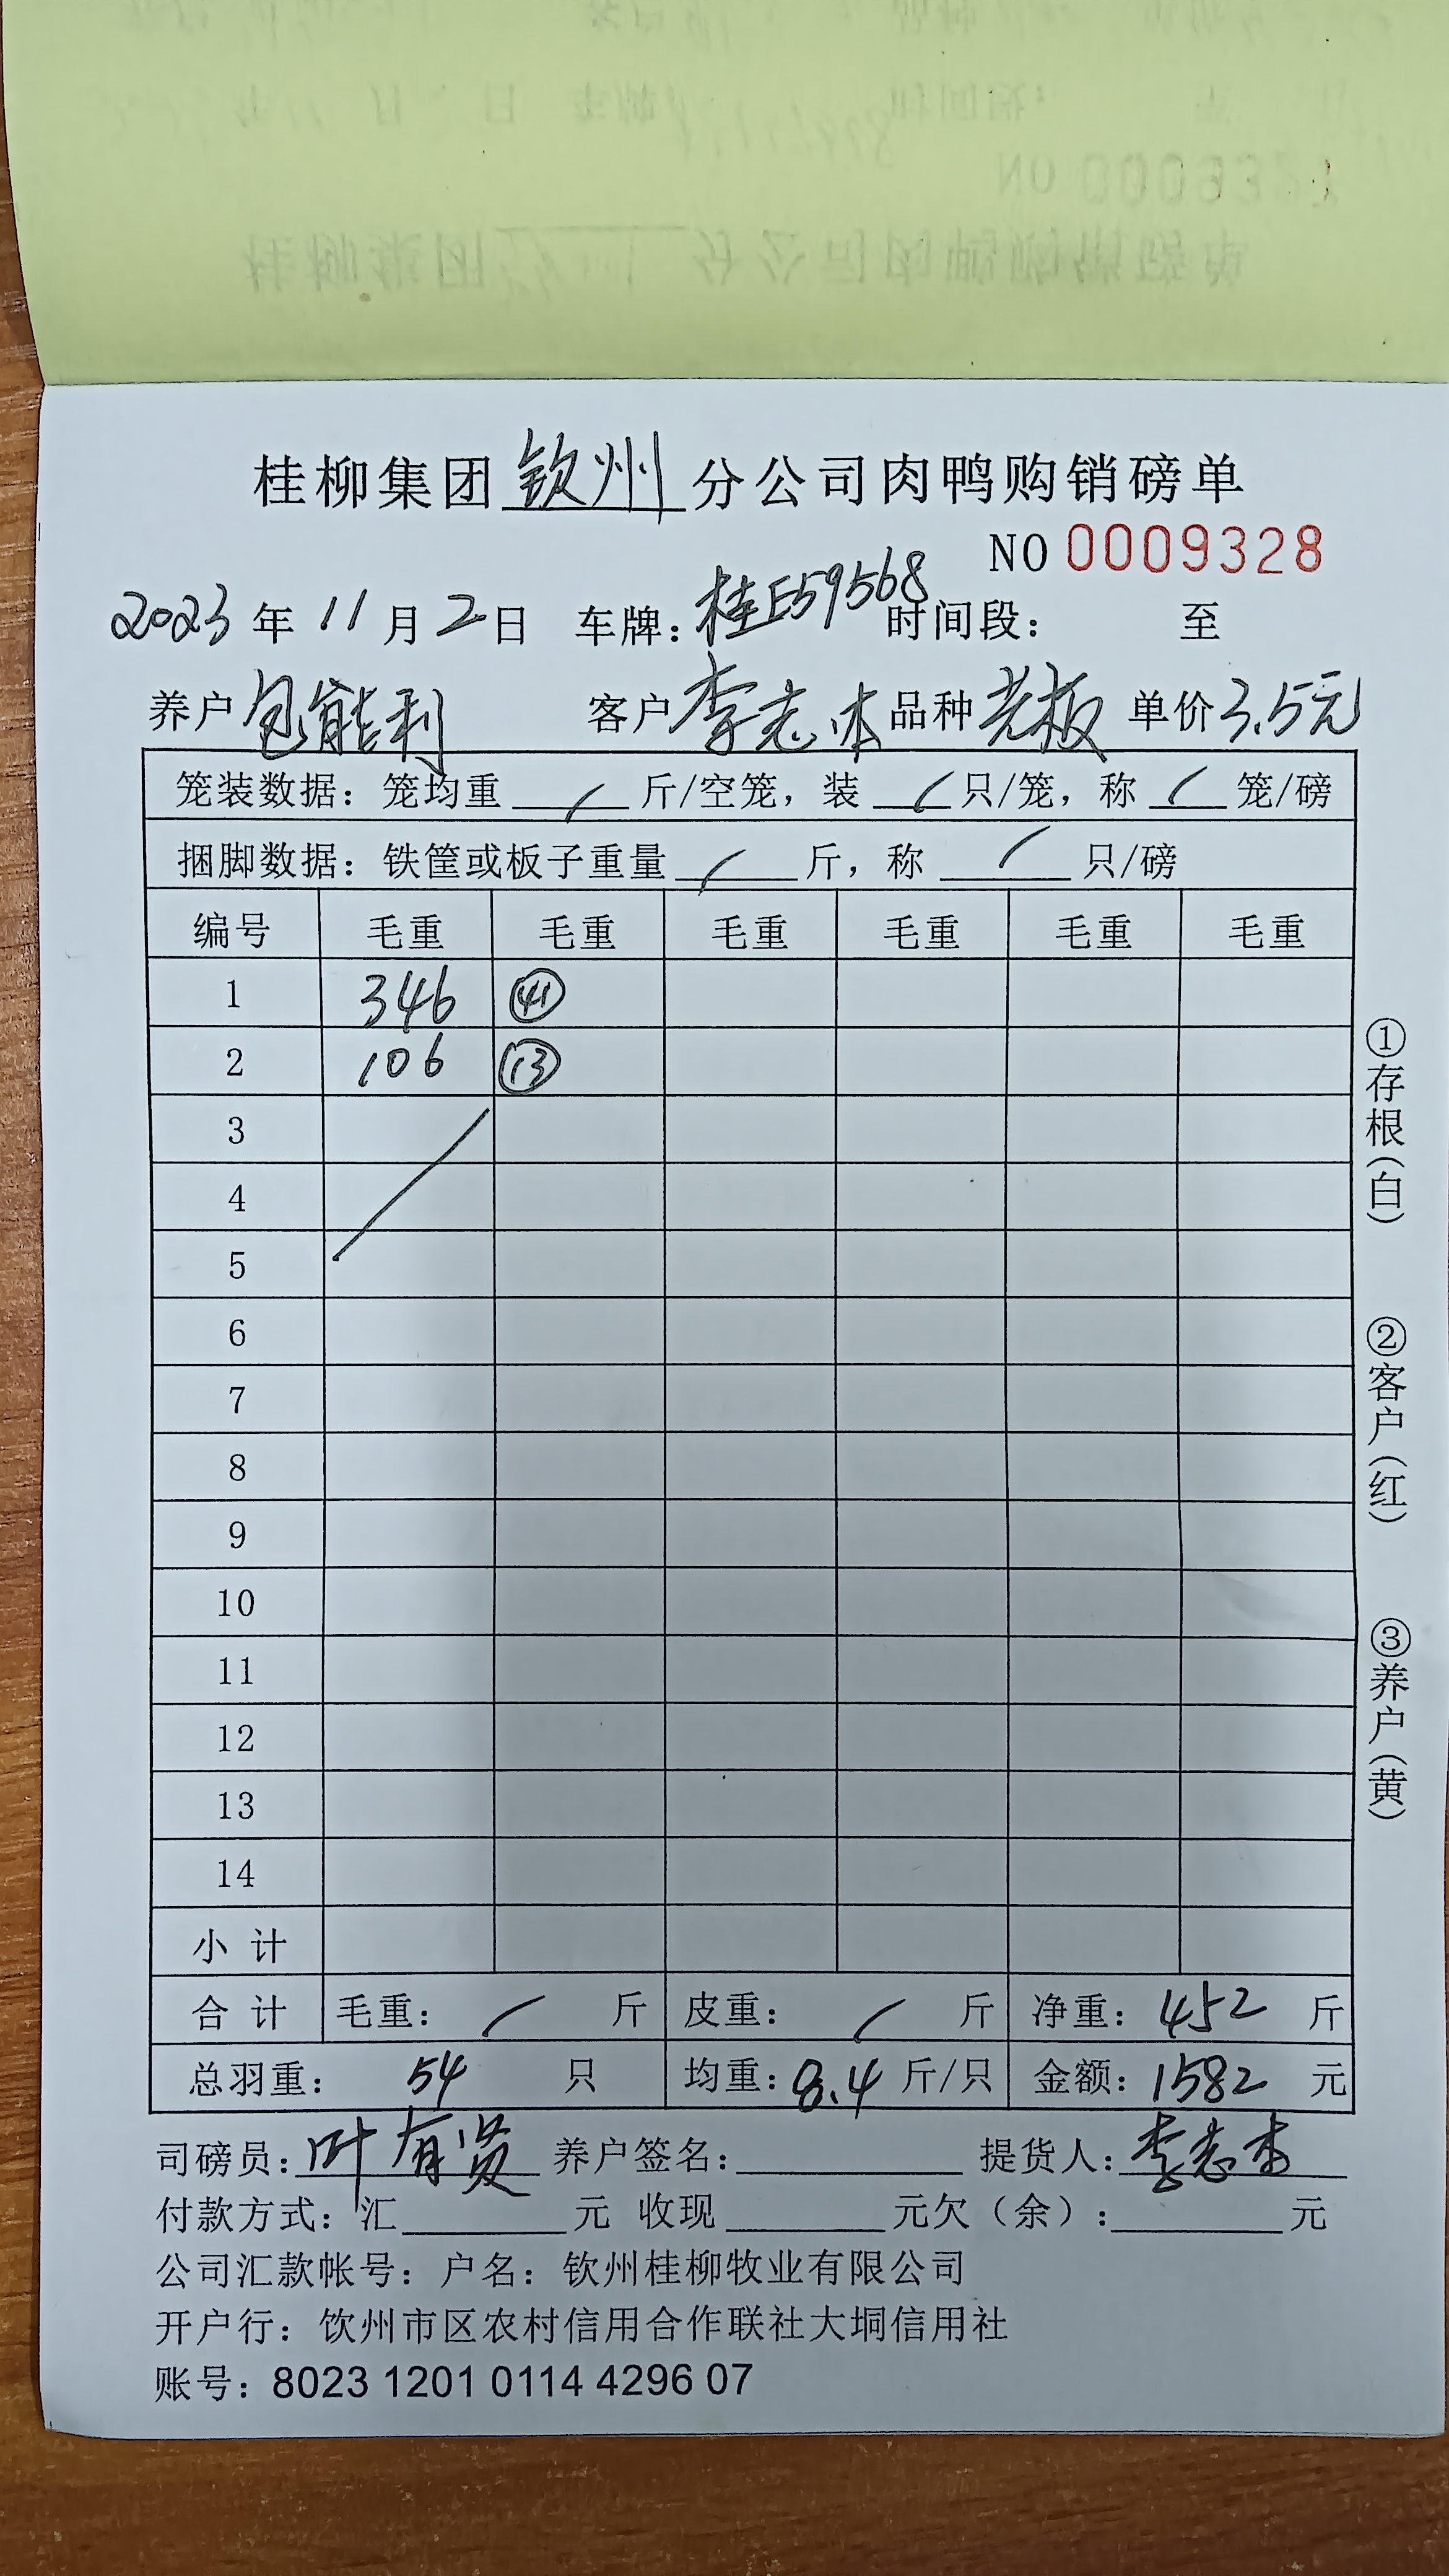 桂柳集团钦州分公司肉鸭购销磅单
NO 0009328
2023年11月2日 车牌：桂E59568 时间段： 至
养户 包能利 客户 李志本 品种 老板 单价 3.5元
笼装数据：笼均重 / 斤/空笼，装 / 只/笼，称 / 笼/磅
捆脚数据：铁筐或板子重量 / 斤，称 / 只/磅
编号 毛重 毛重 毛重 毛重 毛重 毛重
1 346 ㊶
2 106 ⑬
3
4
5
6
7
8
9
10
11
12
13
14
小计
合计 毛重： / 斤 皮重： / 斤 净重：452 斤
总羽重：54 只 均重：8.4 斤/只 金额：1582 元
司磅员：叶有贤 养户签名： 提货人：李志本
付款方式：汇 元 收现 元欠（余）： 元
公司汇款帐号：户名：钦州桂柳牧业有限公司
开户行：钦州市区农村信用合作联社大垌信用社
账号：8023 1201 0114 4296 07
①存根（白）
②客户（红）
③养户（黄）